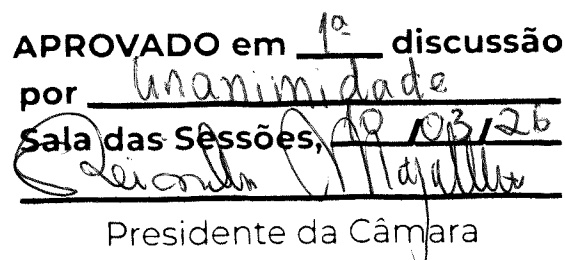 APROVADO em 1ª discussão
por Unanimidade
Sala das Sessões, /03/26
Presidente da Câmara